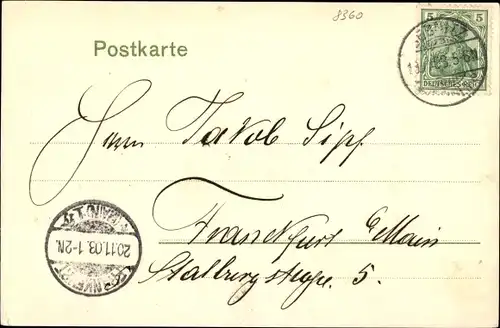 8360
Postkarte
5
DEUTSCHES REICH
Herrn Jakob Sipf
20.11.03. 1-2N.
Frankfurt a/Main
Stalburgstraße 5.